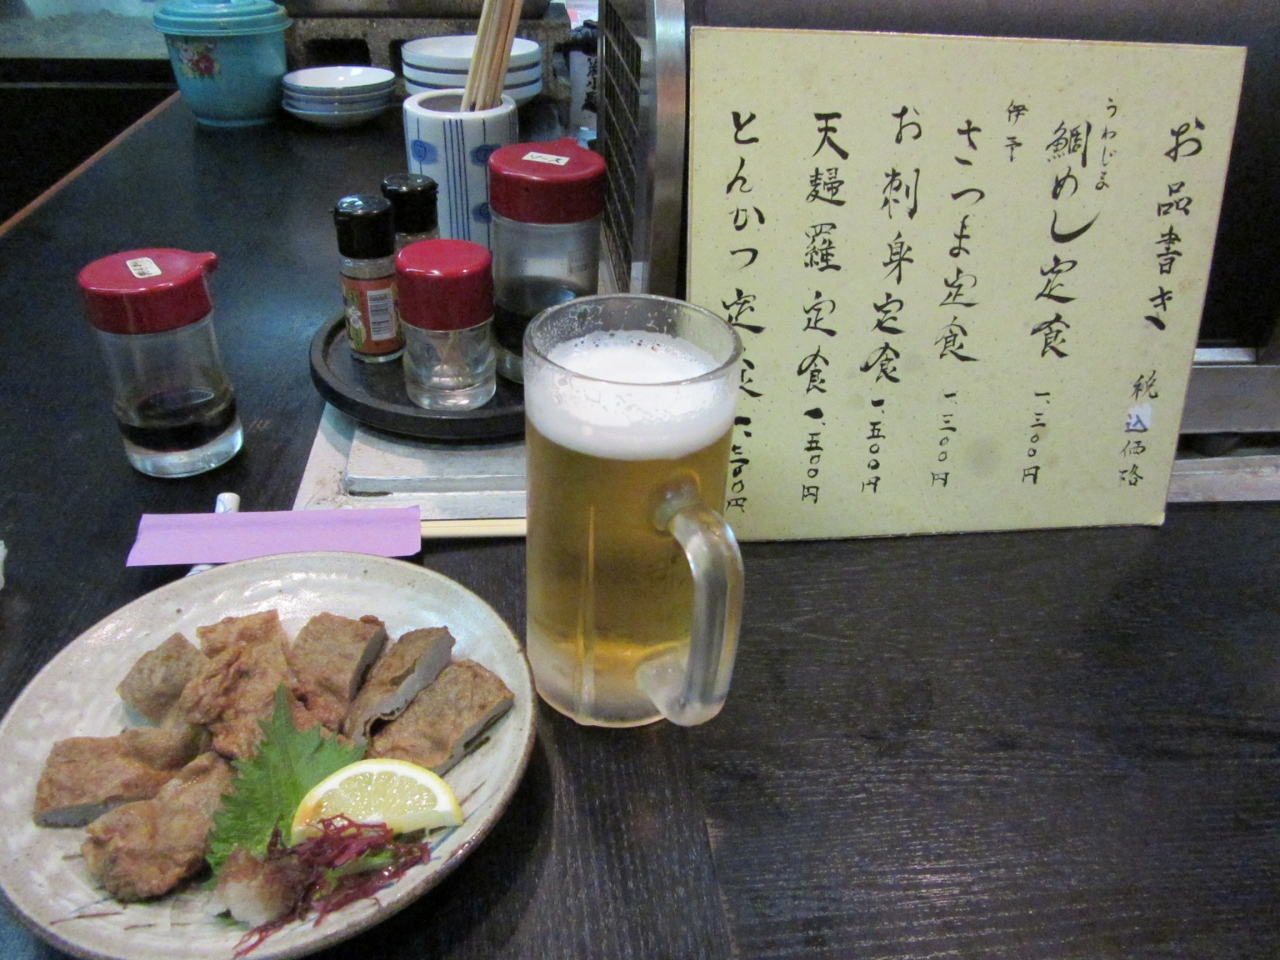 お品書き
税込価格
うわじま
鯛めし定食 一、三〇〇円
伊予
さつま定食 一、三〇〇円
お刺身定食 一、五〇〇円
天麺羅定食 一、五〇〇円
とんかつ定食
ソース